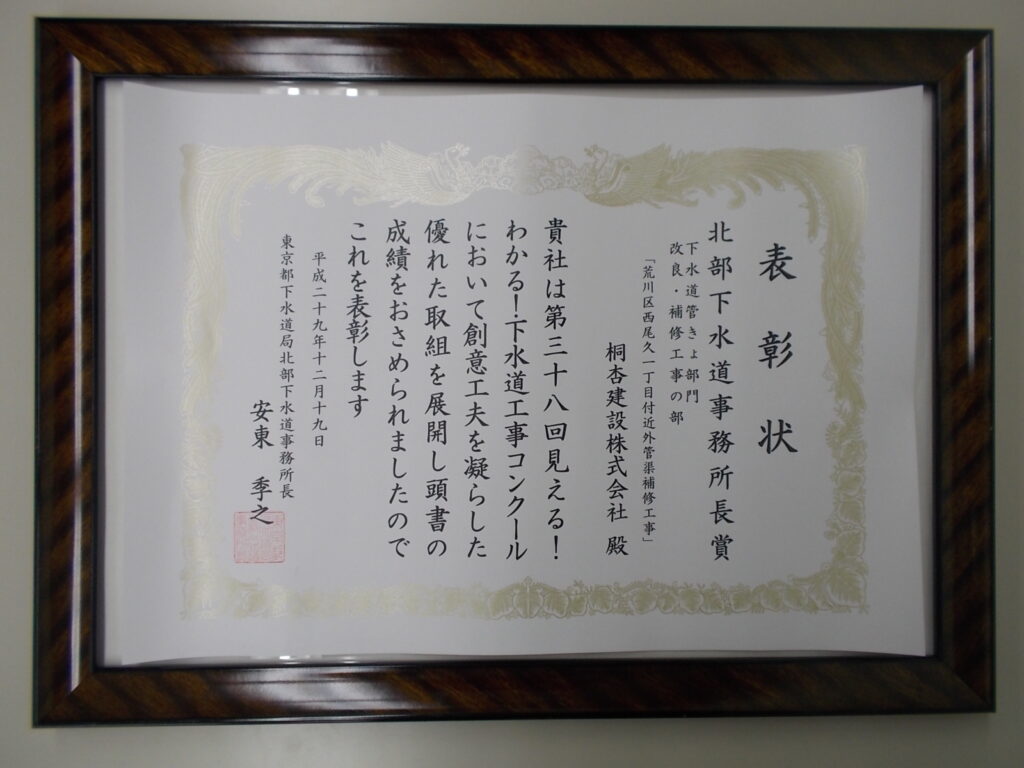 表彰状
北部下水道事務所長賞
下水道管きょ部門
改良・補修工事の部
「荒川区西尾久一丁目付近外管渠補修工事」
桐杏建設株式会社 殿
貴社は第三十八回見える!
わかる!下水道工事コンクール
において創意工夫を凝らした
優れた取組を展開し頭書の
成績をおさめられましたので
これを表彰します
平成二十九年十二月十九日
東京都下水道局北部下水道事務所長
安東 季之